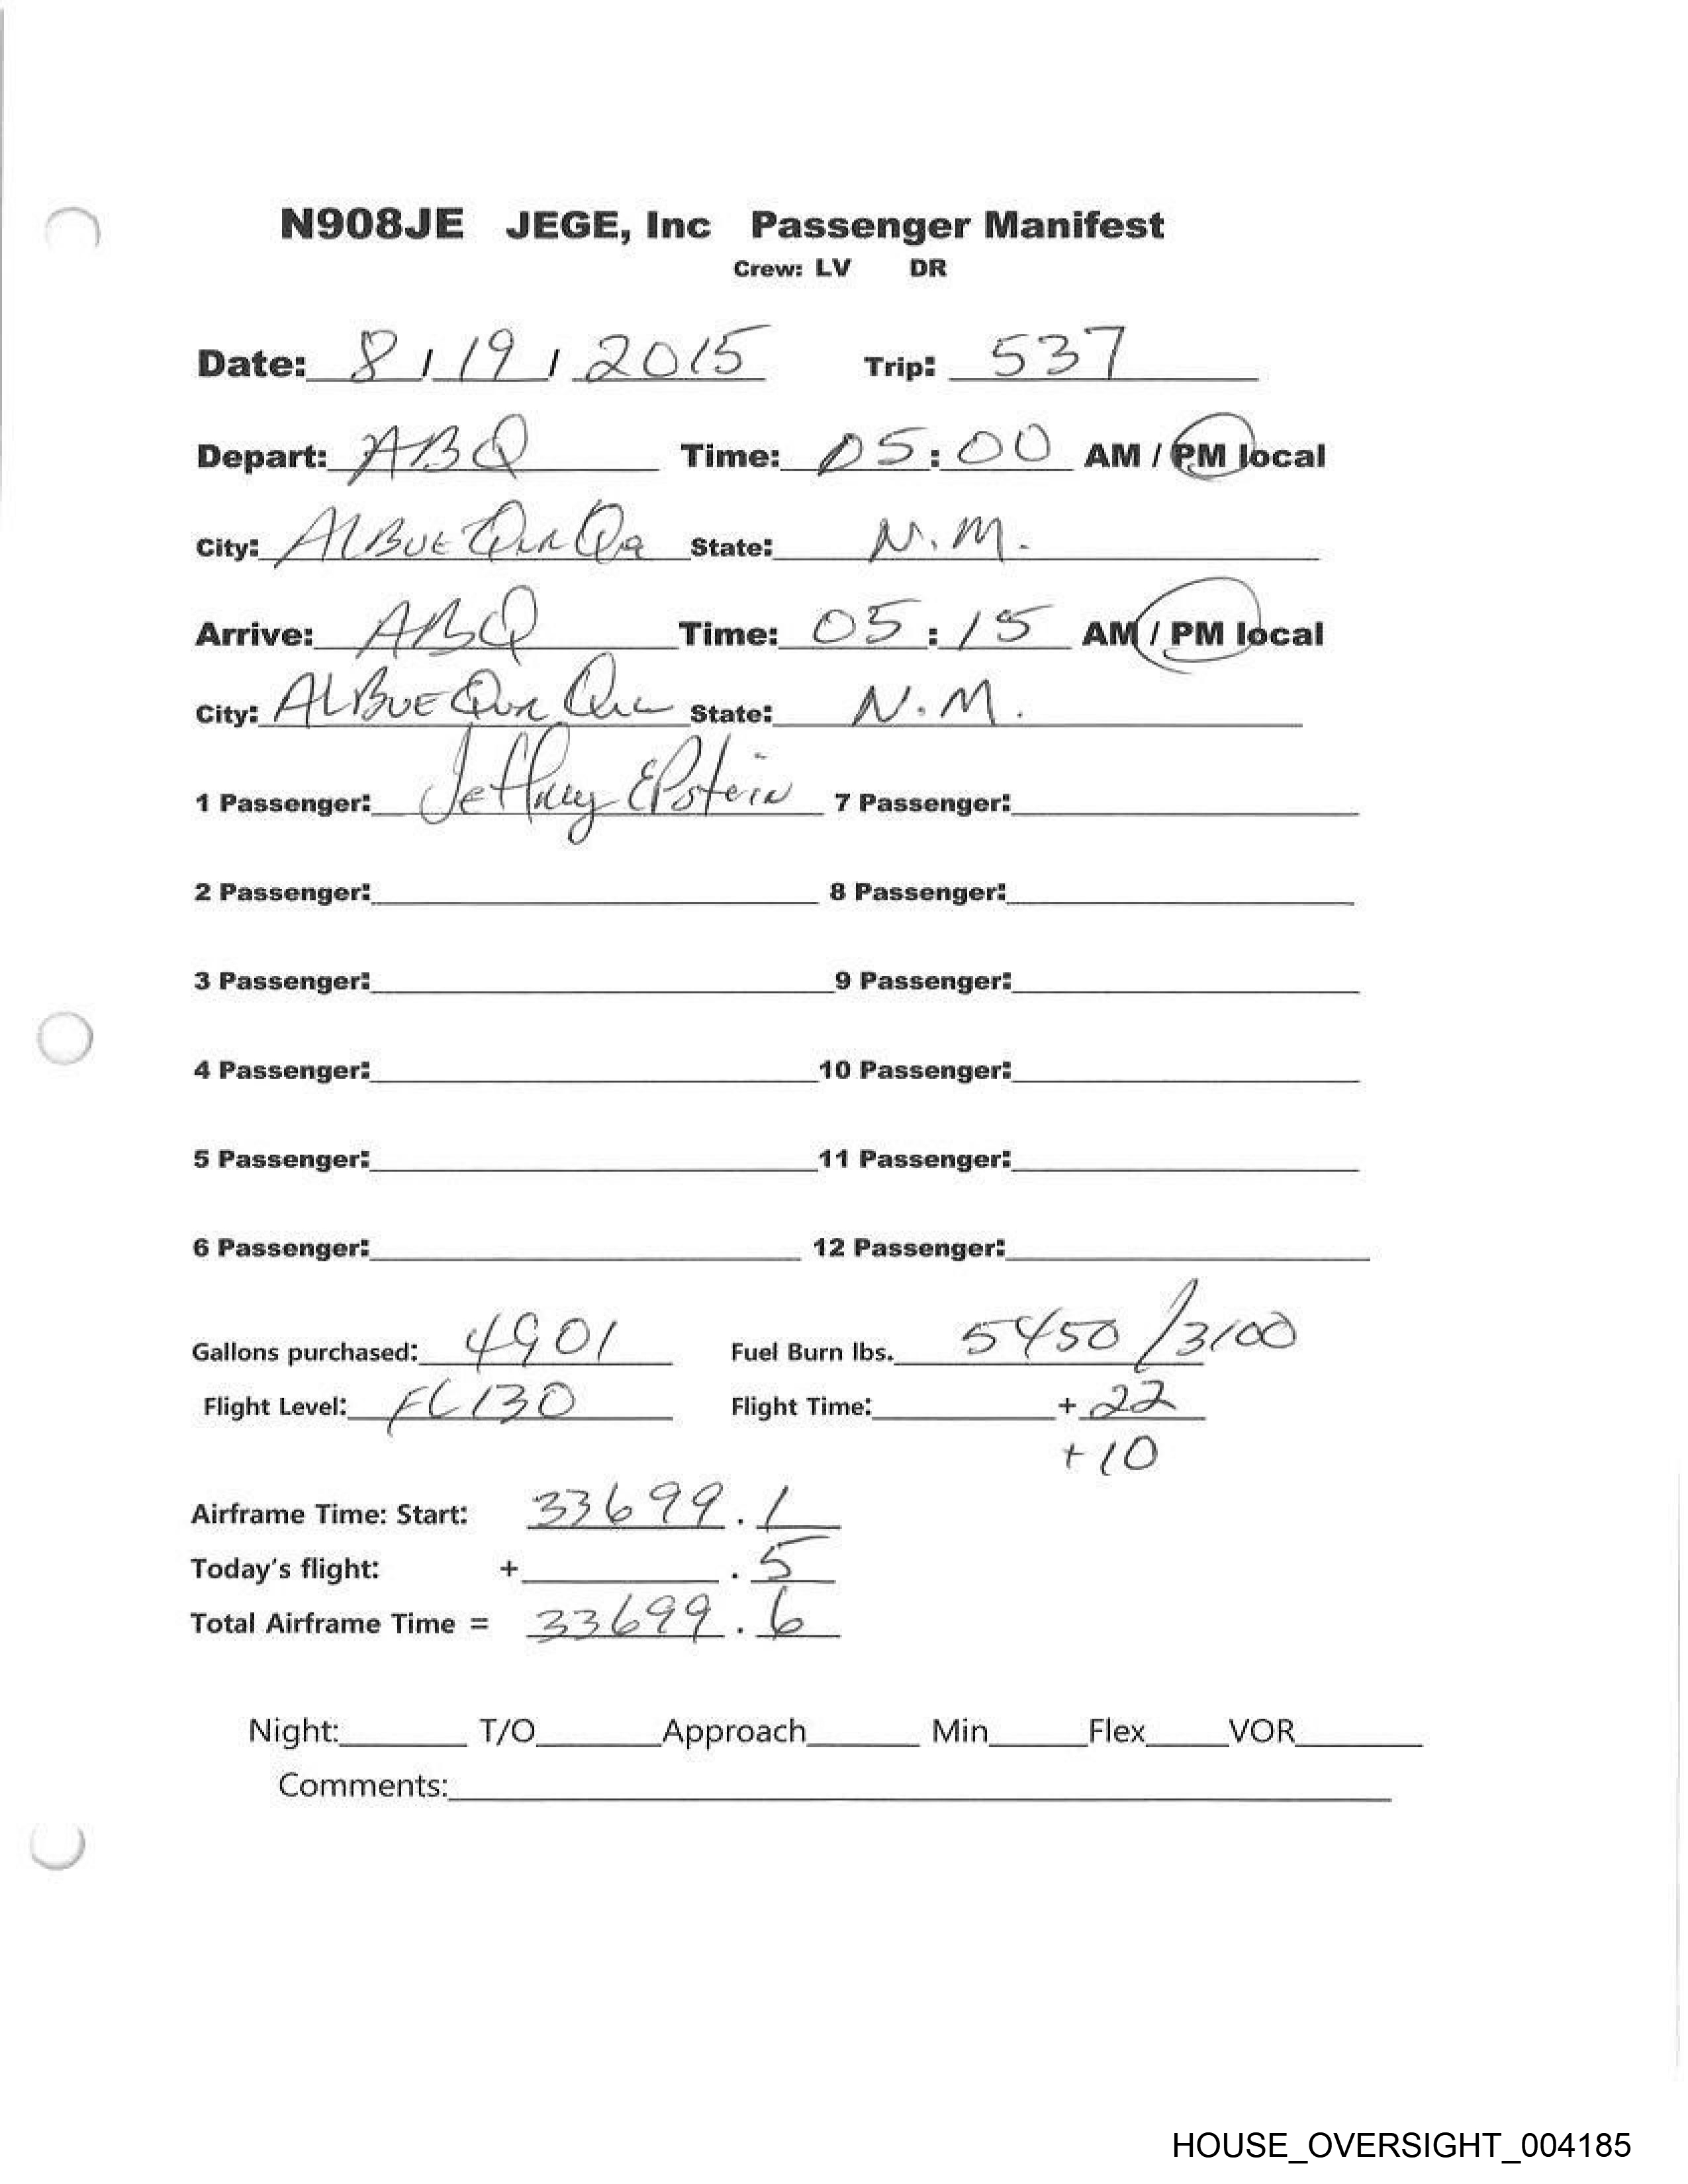 N908JE JEGE, Inc Passenger Manifest
Crew: LV DR
Date: 8 / 19 / 2015 Trip: 537
Depart: ABQ Time: 05:00 AM / PM local
City: State: N.M.
Arrive: ABQ Time: 05:15 AM / PM local
City: State: N.M.
1 Passenger: Jeffrey Epstein 7 Passenger:
2 Passenger: 8 Passenger:
3 Passenger: 9 Passenger:
4 Passenger: 10 Passenger:
5 Passenger: 11 Passenger:
6 Passenger: 12 Passenger:
Gallons purchased: 4901 Fuel Burn lbs. 5450/3100
Flight Level: FL130 Flight Time: + 22
+ 10
Airframe Time: Start: 33699.1
Today's flight: + .5
Total Airframe Time = 33699.6
Night: T/O Approach Min Flex VOR
Comments:
HOUSE_OVERSIGHT_004185